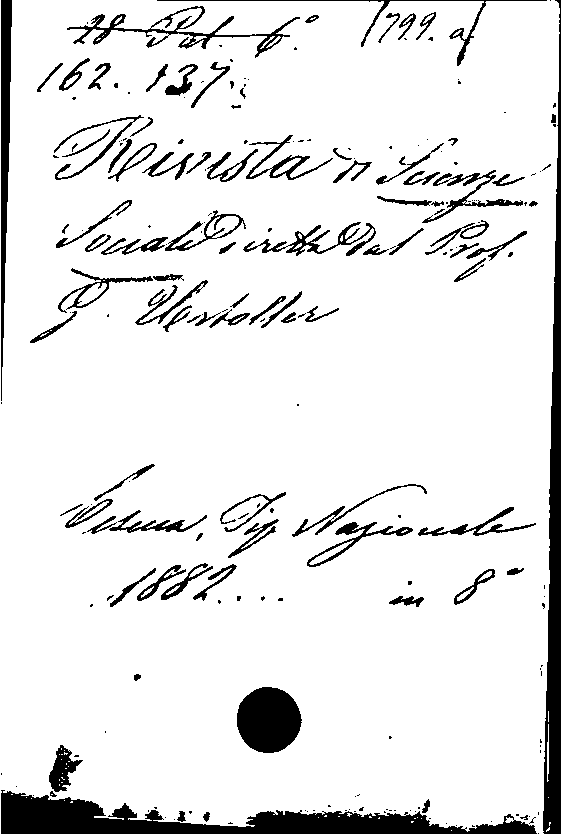 28 Pal. 6° 1799. a
162. 137.
Rivista di Scienze
Sociali Diretta Dal Prof.
G.
Cesena, Tip. Nazionale
1882.... in 8°